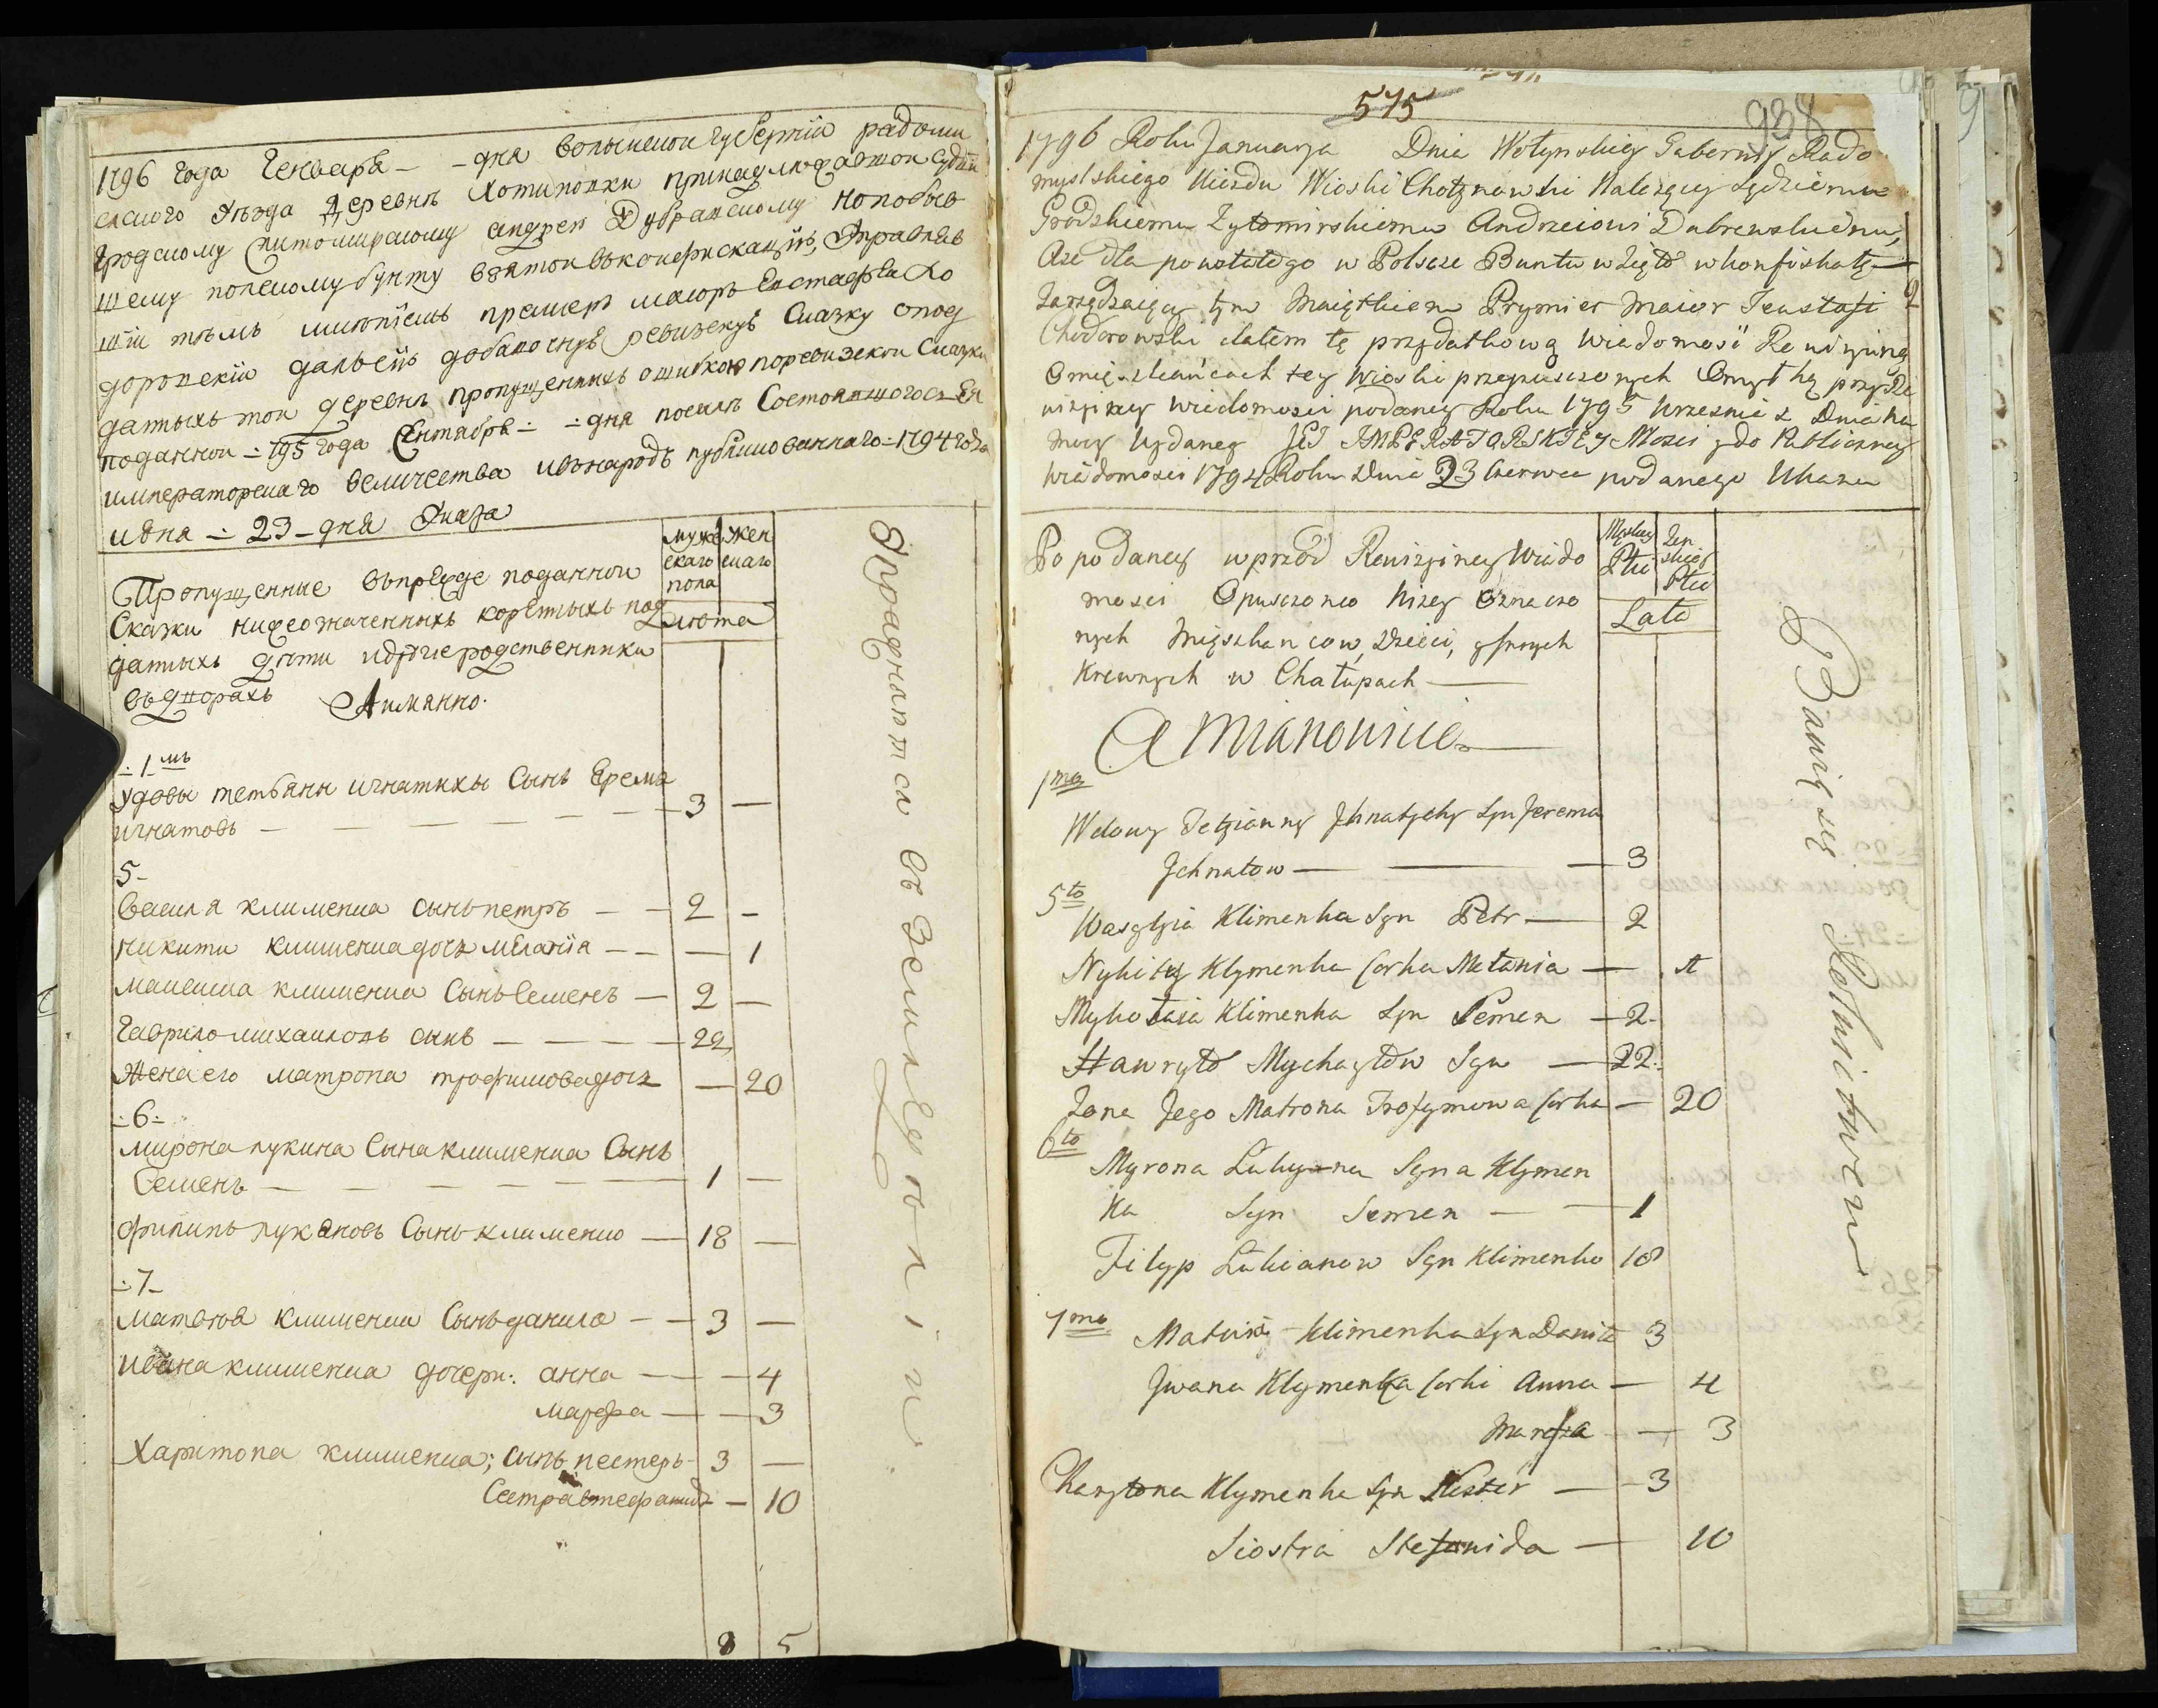 1796 года Генваря - - дня волынскои губернии радоми
слского уезда деревнѣ Хотиновки принадлежавшои судии
гродскому житомирскому андрею Дубравскому но побыв
шему полскому бунту взятои въ конфискацiю, управляв
шiи тѣмъ имѣнiемъ премеръ маиоръ Евстафеи Хо
доровскiи далъ сiю добавочную ревизскую Сказку о под
данныхъ тои деревнѣ пропущенныхъ ошибкою по ревизскои Сказки
поданнои 795 года Сентября дня по силѣ Состоявшогося Ея
императорскаго величества и въ народъ публикованнаго 1794 года
июня 23 дня Указа
Пропущенные въ прежде поданнои
Сказки нижеозначенныхъ крестьянъ под
данныхъ дѣти и другие родственники
въ дворахъ А имянно.
мужескаго пола
женскаго
Лѣта
1мъ
удовы тетьяни игнатихи Сынъ Ерема
игнатовъ — 3 —
5
василя клименка сынъ петръ — 2 —
никити клименка дочь меланiя — — 1
николая клименка Сынъ Семенъ — 2 —
гаврило михаиловъ сынъ — 22
Жена его матрона трофимова дочь — 20
6
мирона лукина Сына клименка Сынъ
Семенъ — 1 —
филипъ лукяновъ Сынъ клименко — 18 —
7
матвѣя клименка Сынъ данило — 3 —
ивана клименка дочери: анна — 4
марфа — 3
Харитона клименка; сынъ нестеръ 3 —
Сестра стефанида — 10
8 5
Упраднятся въ Земледѣлiи.
575
938
1796 Roku Januarya Dnia Wołynskiey Guberniy Rado
myslskiego Uiezdu Wioski Chotynowki Należącey Sędziemu
Grodzkiemu Zytomirskiemu Andrzeiowi Dubrawskiemu,
Aze dla powstałego w Polszcze Buntu wzięto w konfiskatę
Zarządzaiący tym Maiątkiem Prymier Maior Jewstafi
Chodorowski dałem tę przydatkową Wiadomość Rewizyiną
o mięszkańcach tey Wioski przepuszczonych Omyłką przy Re
wizyiney Wiadomosci podaney Roku 1795 Wrzesnia Dnia na
mocy Wydaney JEJ IMPERATORSKIEY Mosci y do Publiczney
Wiadomosci 1794 Roku Dnia 23 Czerwca podanego Ukazu
Po podaney wprzód Rewizyiney Wiado
mosci Opuszczono niżey Oznaczo
nych Mięszkańcow, Dzieci, y innych
Krewnych w Chałupach —
A Mianowicie
Męskiey Płci
Żenskiey Płci
Lata
1mo
Wdowy Tetjanny Jhnatychy Syn Jerema
Jchnatow — 3
5to
Wasylyia Klimenka Syn Petr — 2
Nykity Klymenka Corka Mełania — 1
Mykołaia Klimenka Syn Semen — 2
Hawryło Mychayłów Syn — 22
Zona Jego Matrona Trofymowa Corka — 20
6to
Myrona Łukyna Syna Klymen
ka Syn Semen — 1
Filyp Łukianow Syn Klimenko 18
7mo
Matwia Klimenka Syn Daniło 3
Jwana Klymenka Corki Anna — 4
Marfa — 3
Charytona Klymenka Syn Nester — 3
Siostra Stefanida — 10
Bawią się Rolnictwem